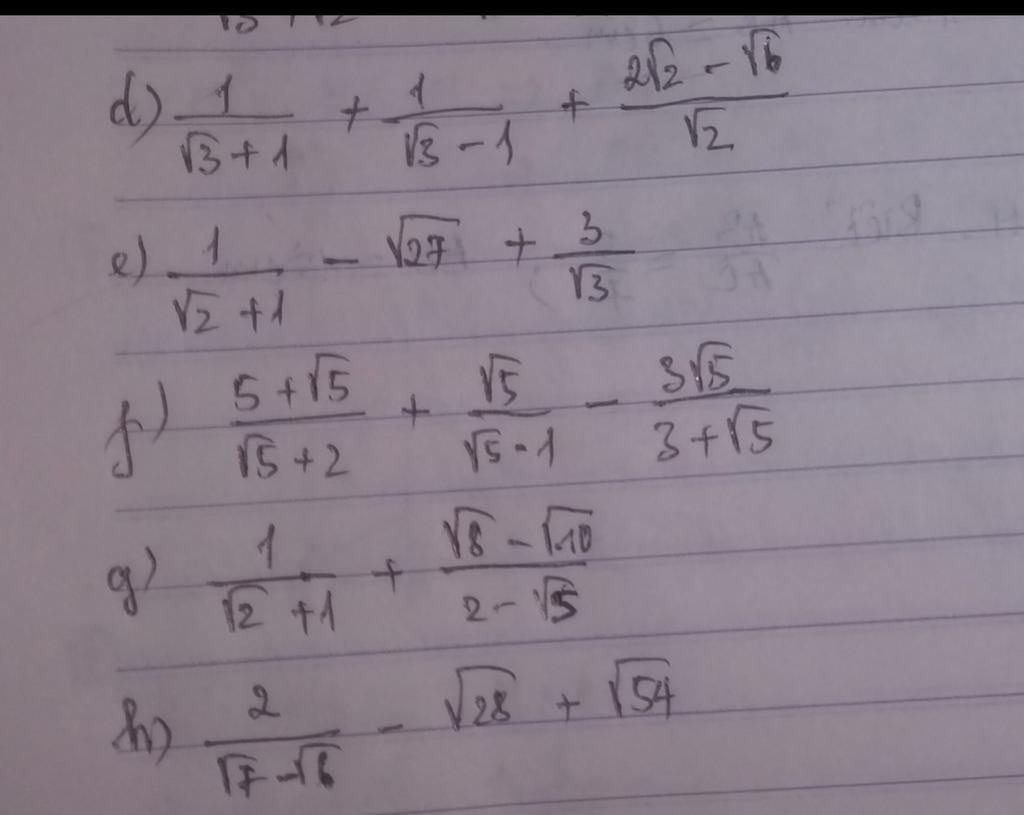 d) \frac{1}{√3 + 1} + \frac{1}{√3 - 1} + \frac{2√2 - √6}{√2}
e) \frac{1}{√2 + 1} - √27 + \frac{3}{√3}
f) \frac{5 + √5}{√5 + 2} + \frac{√5}{√5 - 1} - \frac{3√5}{3 + √5}
g) \frac{1}{√2 + 1} + \frac{√8 - √10}{2 - √5}
h) \frac{2}{√7 - √6} - √28 + √54